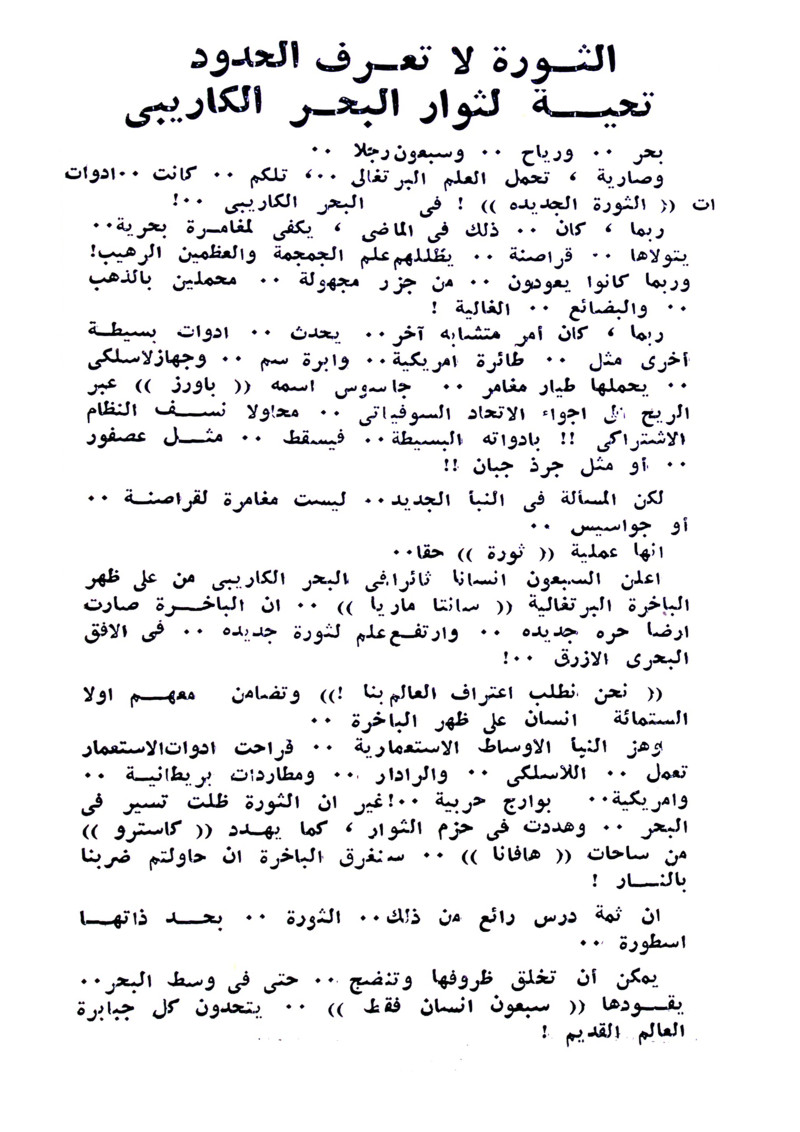 الثورة لا تعرف الحدود
تحية لثوار البحر الكاريبى
بحر ٠٠ ورياح ٠٠ وسبعون رجلا ٠٠
وصارية ، تحمل العلم البرتغالى ٠٠، تلكم ٠٠ كانت ٠٠ ادوات
ات (( الثورة الجديده )) ! فى البحر الكاريبى ٠٠!
ربما ، كان ٠٠ ذلك فى الماضى ، يكفى لمغامرة بحرية٠٠
يتولاها ٠٠ قراصنة ٠٠ يظللهم علم الجمجمة والعظمين الرهيب!
وربما كانوا يعودون ٠٠ من جزر مجهولة ٠٠ محملين بالذهب
٠٠ والبضائع ٠٠ الغالية !
ربما ، كان أمر متشابه آخر٠٠ يحدث ٠٠ ادوات بسيطة
أخرى مثل ٠٠ طائرة امريكية٠٠ وابرة سم ٠٠ وجهازلاسلكى
٠٠ يحملها طيار مغامر ٠٠ جاسوس اسمه (( باورز )) عبر
الريح الى اجواء الاتحاد السوفياتى ٠٠ محاولا نسف النظام
الاشتراكى !! بادواته البسيطة٠٠ فيسقط ٠٠ مثل عصفور
٠٠ أو مثل جرذ جبان !!
لكن المسألة فى النبأ الجديد٠٠ ليست مغامرة لقراصنة ٠٠
أو جواسيس ٠٠
انها عملية (( ثورة )) حقا٠٠
اعلن السبعون انسانا ثائرا فى البحر الكاريبى من على ظهر
الباخرة البرتغالية (( سانتا ماريا )) ٠٠ ان الباخرة صارت
ارضا حره جديده ٠٠ وارتفع علم لثورة جديده ٠٠ فى الافق
البحرى الازرق ٠٠!
(( نحن نطلب اعتراف العالم بنا !)) وتضامن معهم اولا
الستمائة انسان على ظهر الباخرة ٠٠
وهز النبأ الاوساط الاستعمارية ٠٠ فراحت ادوات الاستعمار
تعمل ٠٠ اللاسلكى ٠٠ والرادار ٠٠ ومطاردات بريطانية ٠٠
وامريكية٠٠ بوارج حربية ٠٠!غير ان الثورة ظلت تسير فى
البحر ٠٠ وهددت فى حزم الثوار ، كما يهدد (( كاسترو ))
من ساحات (( هافانا )) ٠٠ سنغرق الباخرة ان حاولتم ضربنا
بالنار !
ان ثمة درس رائع من ذلك٠٠ الثورة ٠٠ بحد ذاتها
اسطورة ٠٠
يمكن أن تخلق ظروفها وتنضج ٠٠ حتى فى وسط البحر٠٠
يقودها (( سبعون انسان فقط )) ٠٠ يتحدون كل جبابرة
العالم القديم !